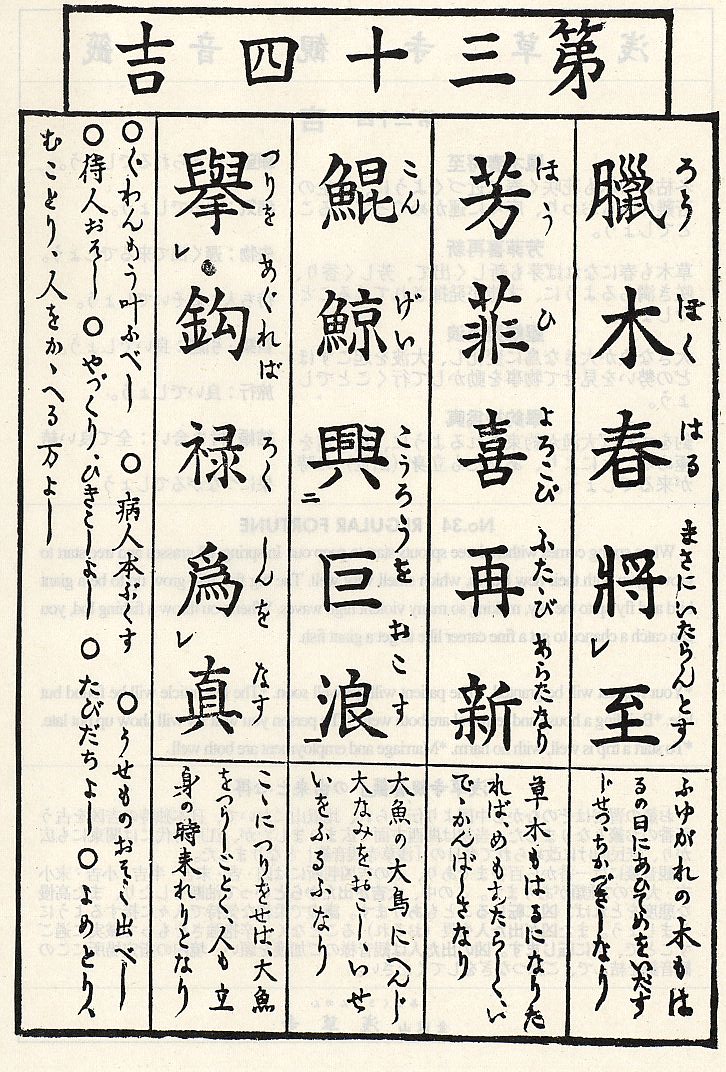 第三十四吉
ろう ぼく はる まさにいたらんとす
臘木春將至
ふゆがれの木もは
るの日にあひてめをいだす
じせちかづきしなり
ほう ひ よろこび ふたゝび あらたなり
芳菲喜再新
草木もはるになりぬ
ればめもあたらしくい
で、かんばしきなり
こん げい ころうを おこす
鯤鯨興二巨浪一
大魚の大鳥にへんじ
大なみをおこしいせ
いをふるふなり
つりを あぐれば ろく しんを なす
擧レ鈎禄爲レ真
こゝにつりをせば、大魚
をつりしごとく、人も立
身の時来れりとなり
○ぐわんもう叶ふべし ○病人本ぷくす ○うせものおそく出べし
○待人おそし ○やづくり、ひきこしよし ○たびだちよし ○よめとり、
むことり、人をかゝへる万よし